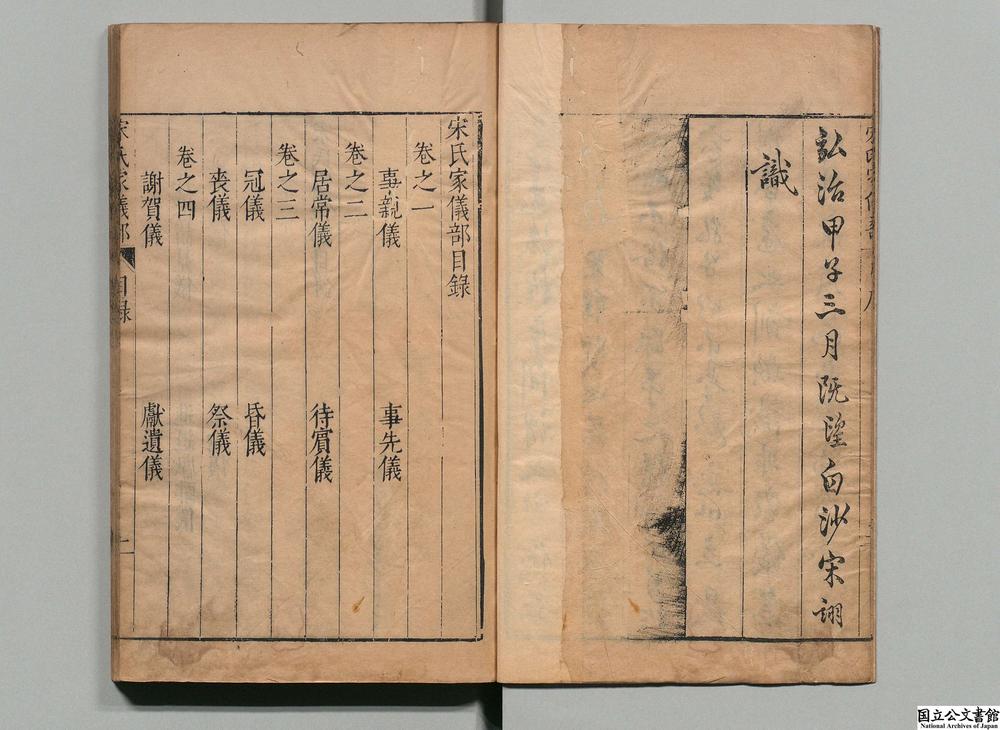 弘治甲子三月既望白沙宋詡
識
宋氏家儀部目錄
卷之一
事親儀 事先儀
卷之二
居常儀 待賔儀
卷之三
冠儀 昏儀
喪儀 祭儀
卷之四
謝賀儀 獻遺儀
宋氏家儀部 目録 一
国立公文書館
National Archives of Japan